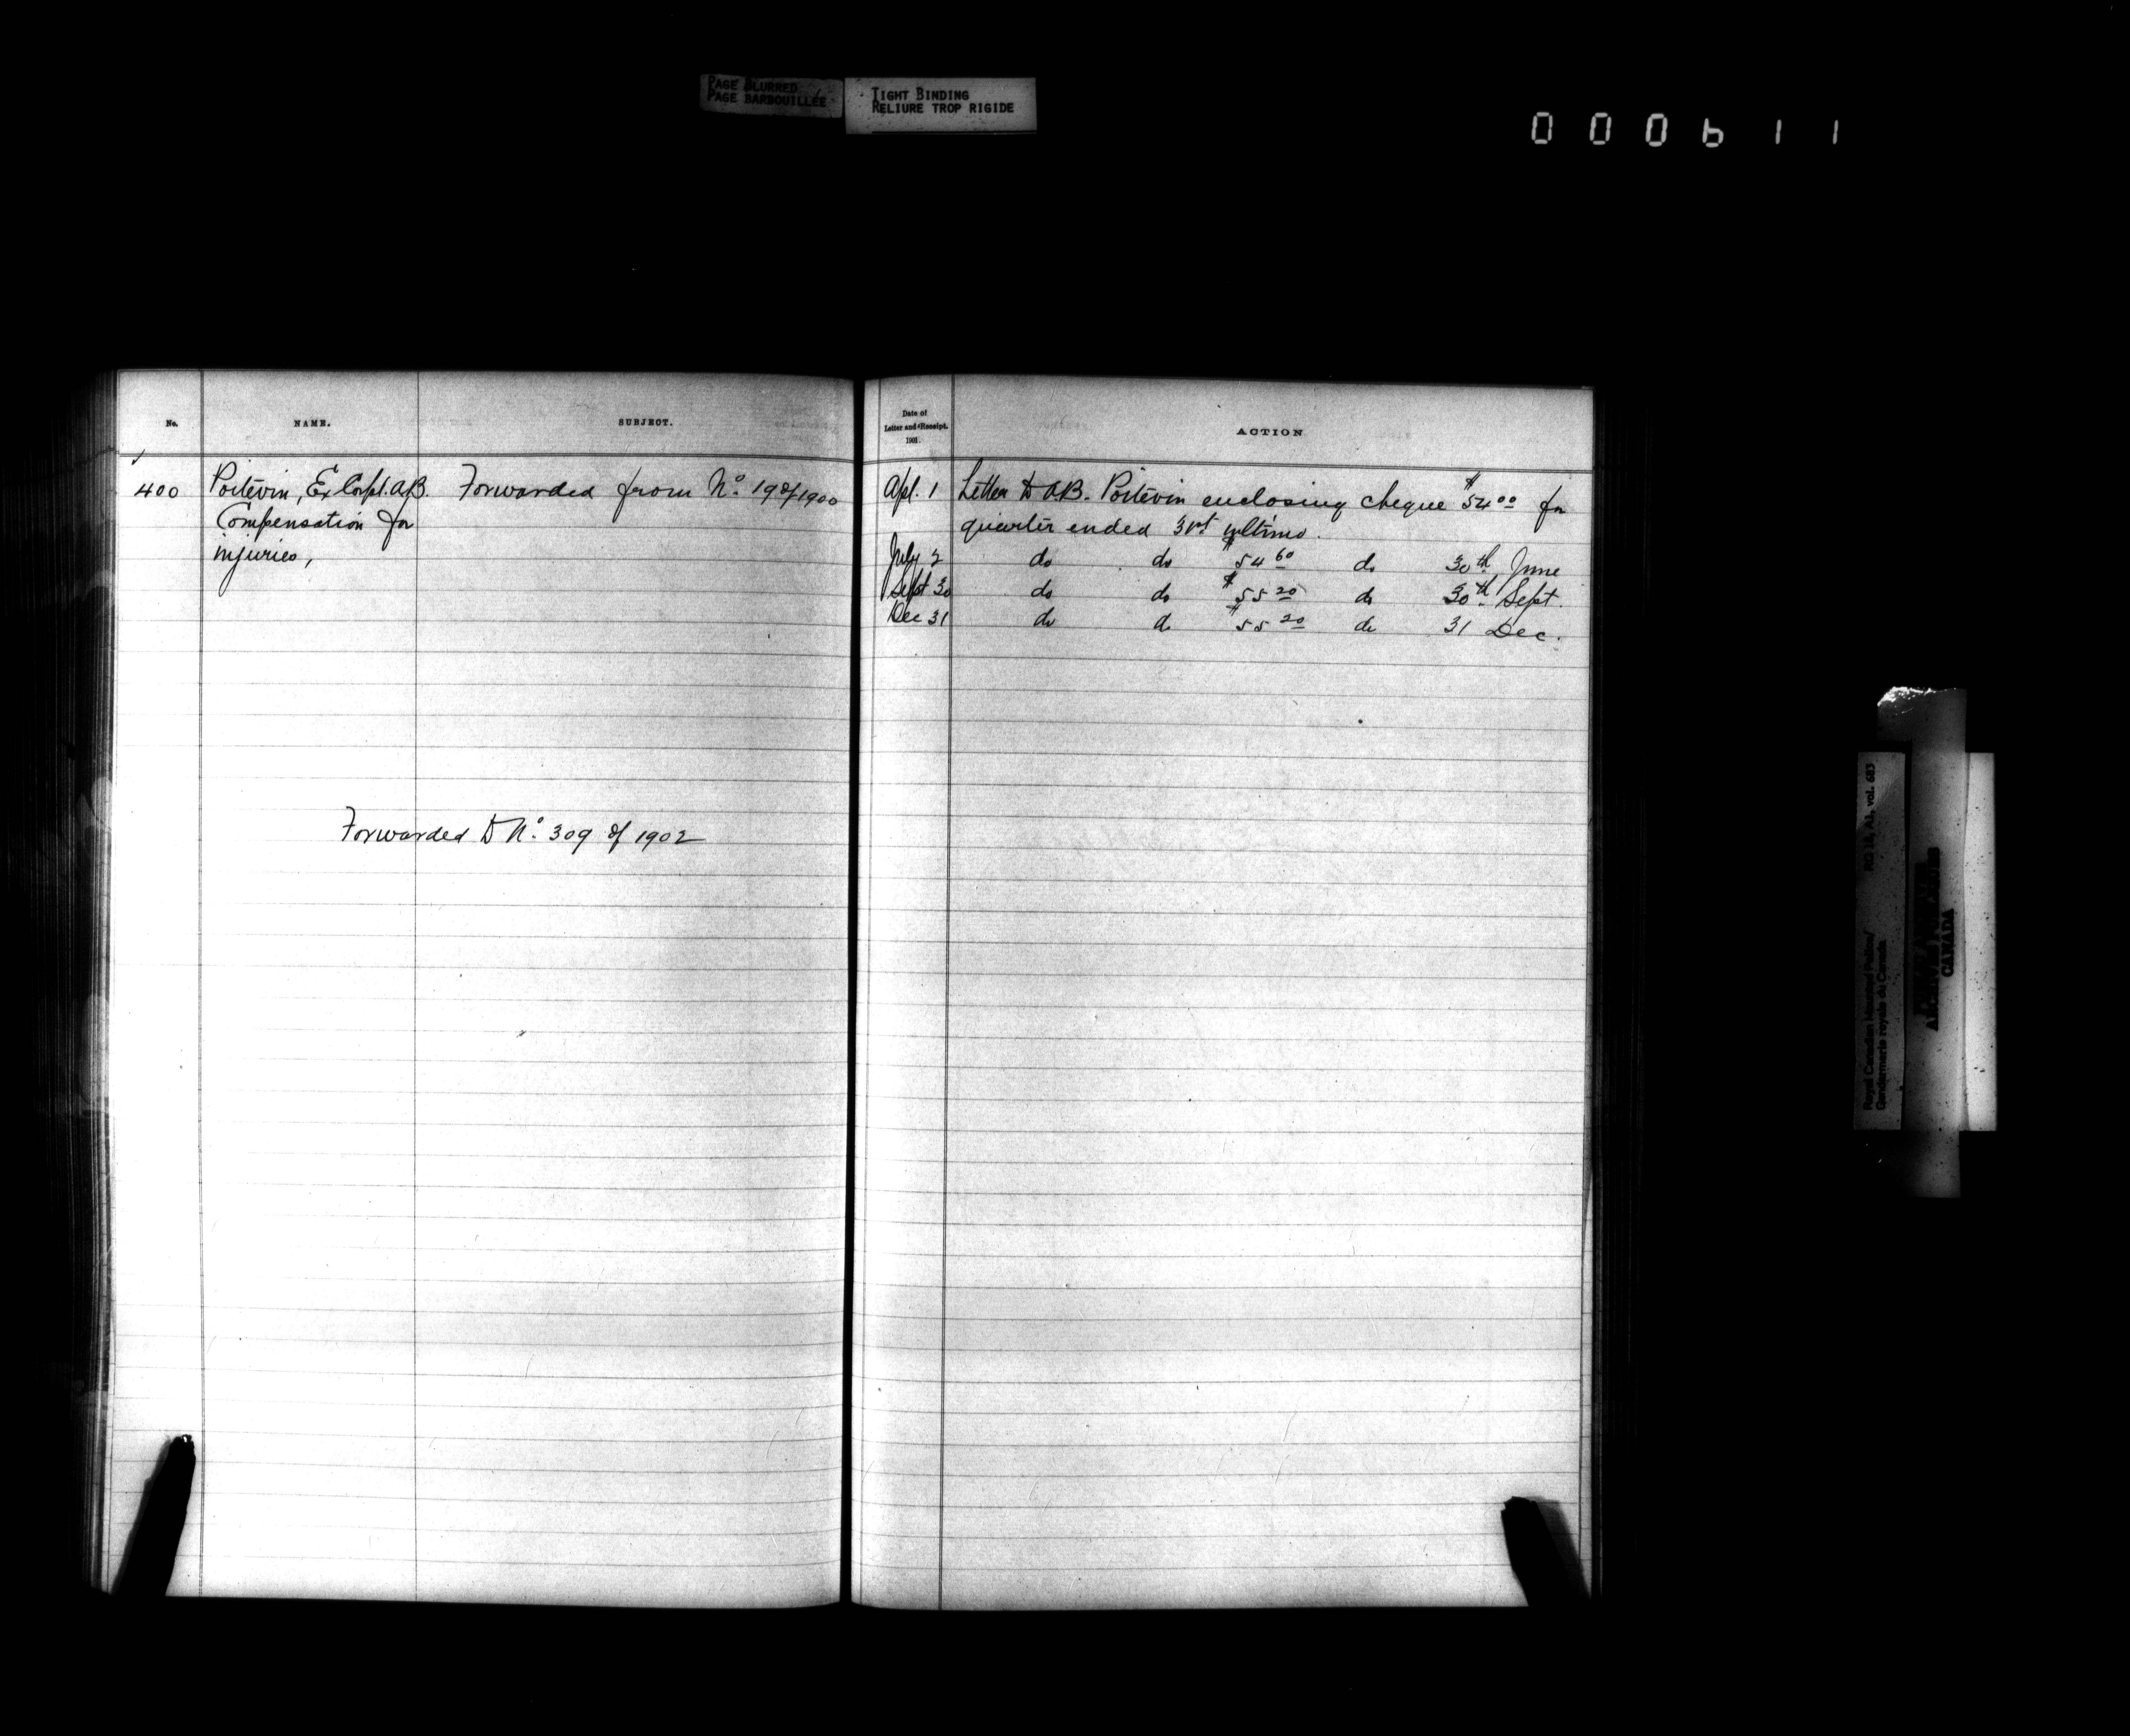 PAGE BLURRED
PAGE BARBOUILLÉE
TIGHT BINDING
RELIURE TROP RIGIDE
000611
No.
NAME.
SUBJECT.
400 Poitevin, Ex Corpl. A.B. Forwarded from No. 198/1900
Compensation for
injuries,
Forwarded to No. 309 of 1902
Date of
Letter and Receipt.
1901.
ACTION
Apl. 1 Letter to A.B. Poitevin enclosing cheque $54 00 for
quarter ended 31st ultimo.
July 2 do do $54 60 do 30th June
Sept 30 do do $55 20 do 30th Sept.
Dec 31 do do $55 20 do 31 Dec.
Royal Canadian Mounted Police/ RG 18, A1, vol. 683
Gendarmerie royale du Canada
CANADA